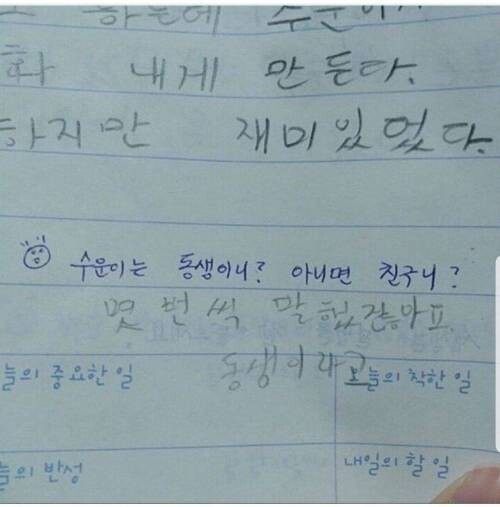 하는데 수운이가
화 내게 만 든다.
하지만 재미있었다.
수운이는 동생이니? 아니면 친구니?
몇 번 씩 말 했잖아요.
동생이라고
늘의 중요한 일 오늘의 착한 일
늘의 반성 내일의 할 일